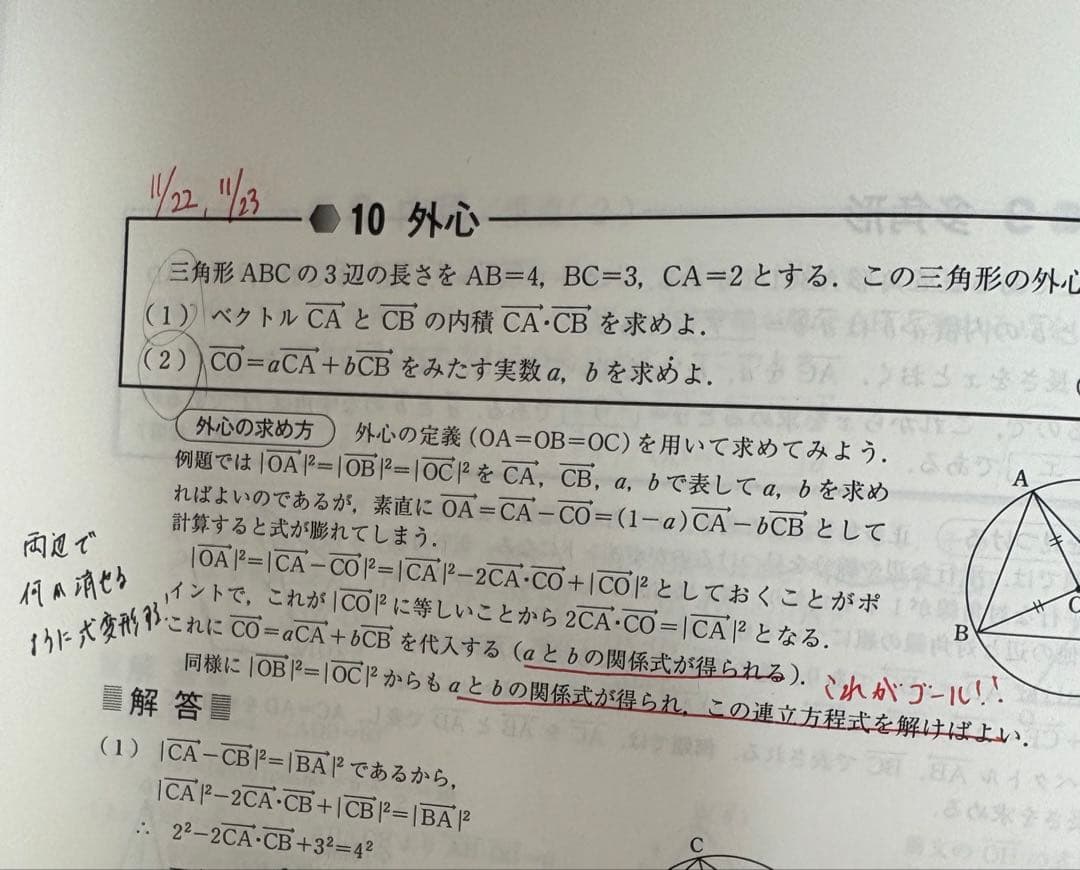 11/22, 11/23
10 外心
三角形 ABC の3辺の長さを AB=4, BC=3, CA=2 とする. この三角形の外心
(1) ベクトル $\overrightarrow{CA}$ と $\overrightarrow{CB}$ の内積 $\overrightarrow{CA}\cdot\overrightarrow{CB}$ を求めよ.
(2) $\overrightarrow{CO}=a\overrightarrow{CA}+b\overrightarrow{CB}$ をみたす実数 a, b を求めよ.
外心の求め方 外心の定義 (OA=OB=OC) を用いて求めてみよう.
例題では $|\overrightarrow{OA}|^2=|\overrightarrow{OB}|^2=|\overrightarrow{OC}|^2$ を $\overrightarrow{CA}$, $\overrightarrow{CB}$, a, b で表して a, b を求め
ればよいのであるが, 素直に $\overrightarrow{OA}=\overrightarrow{CA}-\overrightarrow{CO}=(1-a)\overrightarrow{CA}-b\overrightarrow{CB}$ として
計算すると式が膨れてしまう.
$|\overrightarrow{OA}|^2=|\overrightarrow{CA}-\overrightarrow{CO}|^2=|\overrightarrow{CA}|^2-2\overrightarrow{CA}\cdot\overrightarrow{CO}+|\overrightarrow{CO}|^2$ としておくことがポ
イントで, これが $|\overrightarrow{CO}|^2$ に等しいことから $2\overrightarrow{CA}\cdot\overrightarrow{CO}=|\overrightarrow{CA}|^2$ となる.
これに $\overrightarrow{CO}=a\overrightarrow{CA}+b\overrightarrow{CB}$ を代入する (a と b の関係式が得られる).
同様に $|\overrightarrow{OB}|^2=|\overrightarrow{OC}|^2$ からも a と b の関係式が得られ, この連立方程式を解けばよい.
これがゴール!!
両辺で
何か消せる
ように式変形する,
解答
(1) $|\overrightarrow{CA}-\overrightarrow{CB}|^2=|\overrightarrow{BA}|^2$ であるから,
$|\overrightarrow{CA}|^2-2\overrightarrow{CA}\cdot\overrightarrow{CB}+|\overrightarrow{CB}|^2=|\overrightarrow{BA}|^2$
∴ $2^2-2\overrightarrow{CA}\cdot\overrightarrow{CB}+3^2=4^2$
A
B
C